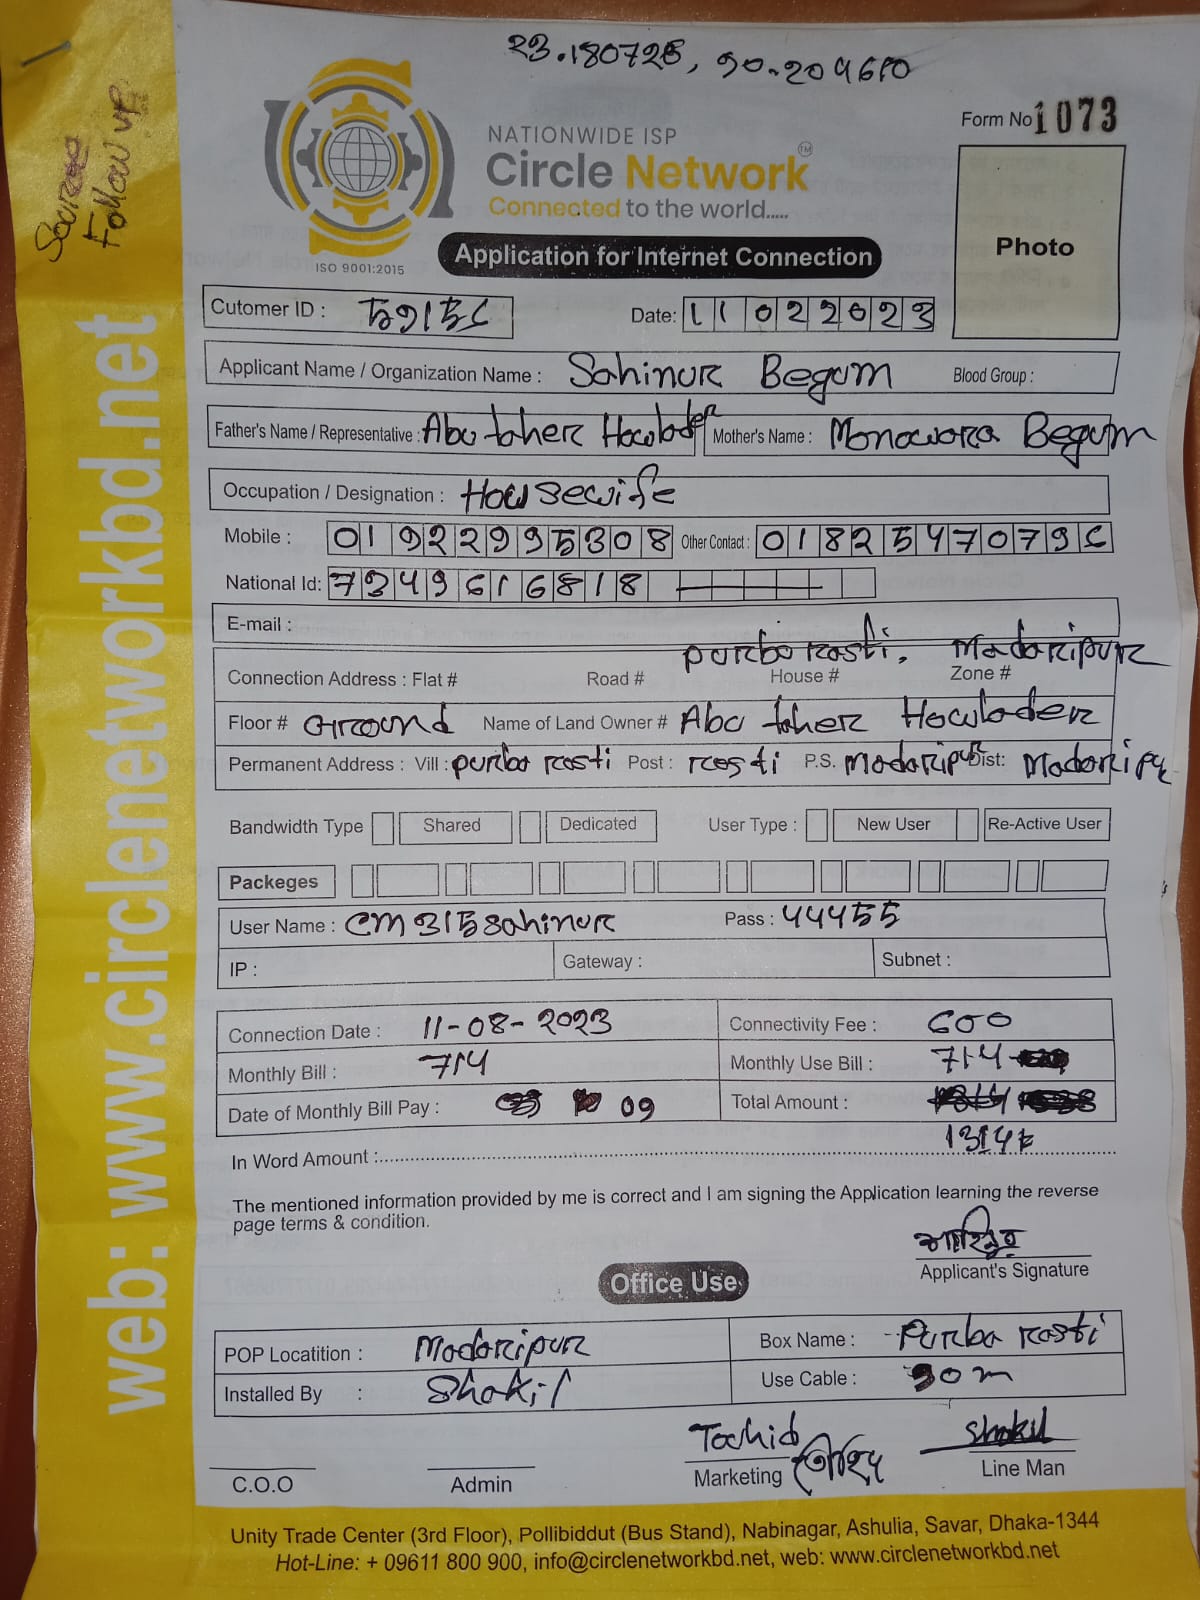 23.180728, 90.209610
Follow up
NATIONWIDE ISP
Circle Network TM
Connected to the world.....
ISO 9001:2015
Form No 1073
Photo
Application for Internet Connection
Cutomer ID :
Date: 11 02 2023
Applicant Name / Organization Name : Sahinur Begum Blood Group :
Father's Name / Representative : Abu taher Howlader Mother's Name : Monowara Begum
Occupation / Designation : Housewife
Mobile : 01922995308 Other Contact : 01825470796
National Id: 7349616818
E-mail :
purbo rasti, Madaripur
Connection Address : Flat # Road # House # Zone #
Floor # Ground Name of Land Owner # Abu taher Howlader
Permanent Address : Vill : purbo rasti Post : rasti P.S. Madaripur Dist: Madaripur
Bandwidth Type Shared Dedicated User Type : New User Re-Active User
Packeges
User Name : CM315sahinur Pass : 44455
IP : Gateway : Subnet :
Connection Date : 11-08-2023 Connectivity Fee : 600
Monthly Bill : 714 Monthly Use Bill : 714
Date of Monthly Bill Pay : 09 Total Amount :
1314
In Word Amount :
The mentioned information provided by me is correct and I am signing the Application learning the reverse
page terms & condition.
শাহিনুর
Applicant's Signature
Office Use
POP Locatition : Madaripur Box Name : Purba rasti
Installed By : Shakil Use Cable : 30m
Towhid Shakil
C.O.O Admin Marketing Line Man
Unity Trade Center (3rd Floor), Pollibiddut (Bus Stand), Nabinagar, Ashulia, Savar, Dhaka-1344
Hot-Line: + 09611 800 900, info@circlenetworkbd.net, web: www.circlenetworkbd.net
web: www.circlenetworkbd.net